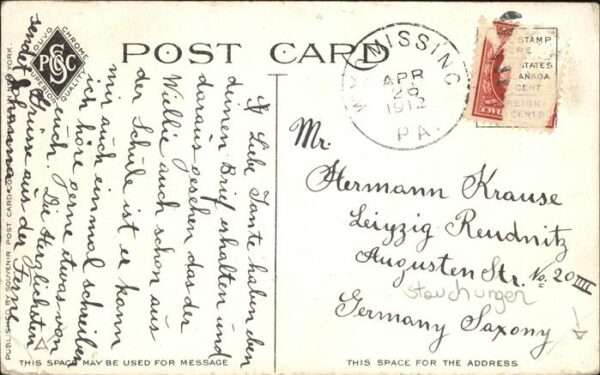 POST CARD
PHOTO CHROME
P S C Co
SUPERIOR QUALITY
WYOMISSING
APR
26
1912
PA.
STAMP
RE
STATES
CANADA
CENT
REIGN
CENTS
Liebe Tante haben den
deinen Brief erhalten und
daraus gesehen das der
Willie auch schon aus
der Schule ist er kann
mir auch einmal schreiben
ich höre gerne etwas von
euch. Die Herzlichsten
Grüsse aus der Ferne
sendet
Mr.
Hermann Krause
Leipzig Reudnitz
Augusten Str. No. 20 IIII
Germany Saxony
PUBLISHED BY SOUVENIR POST CARD CO. NEW YORK.
THIS SPACE MAY BE USED FOR MESSAGE
THIS SPACE FOR THE ADDRESS